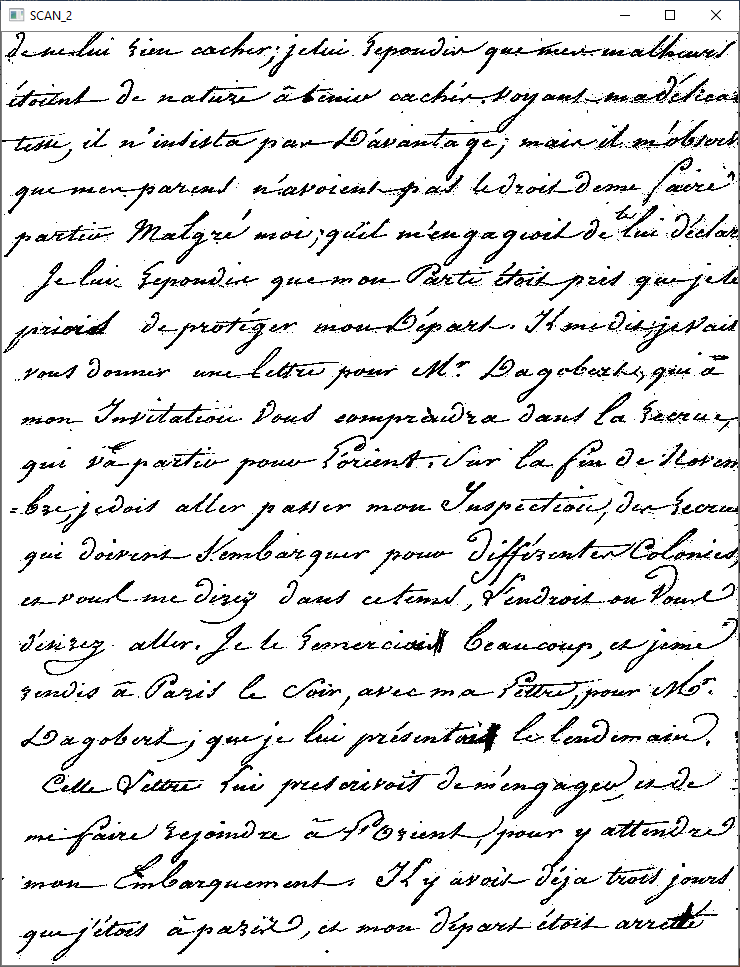 SCAN_2
de ne lui rien cacher; je lui repondis que mes malheurs
étoient de nature à tenir cachés. Voyant ma délica
tesse, il n'insista pas Davantage; mais il m'observ
que mes parens n'avoient pas le droit de me faire
partir Malgré moi; qu'il m'engageoit de le lui déclar
Je lui repondis que mon Parti étoit pris que je le
priois de protéger mon Départ. Il me dit, je vais
vous donner une lettre pour Mr. Dagobert, qui à
mon Invitation Vous comprendra dans la recrue,
qui và partir pour l'orient. Sur la fin de Novem
=bre, je dois aller passer mon Inspection, des recrue
qui doivent s'embarquer pour différentes Colonies,
et vous me direz dans ce tems, l'endroit ou Vous
désirez aller. Je le remerciai beaucoup, et je me
rendis à Paris le Soir, avec ma Lettre, pour Mr.
Dagobert; que je lui présentai le lendemain.
Cette Lettre Lui prescrivoit de m'engager, et de
me faire rejoindre à l'Orient, pour y attendre
mon Embarquement. Il y avoit déja trois jours
que j'étois à paris, et mon départ étoit arreté